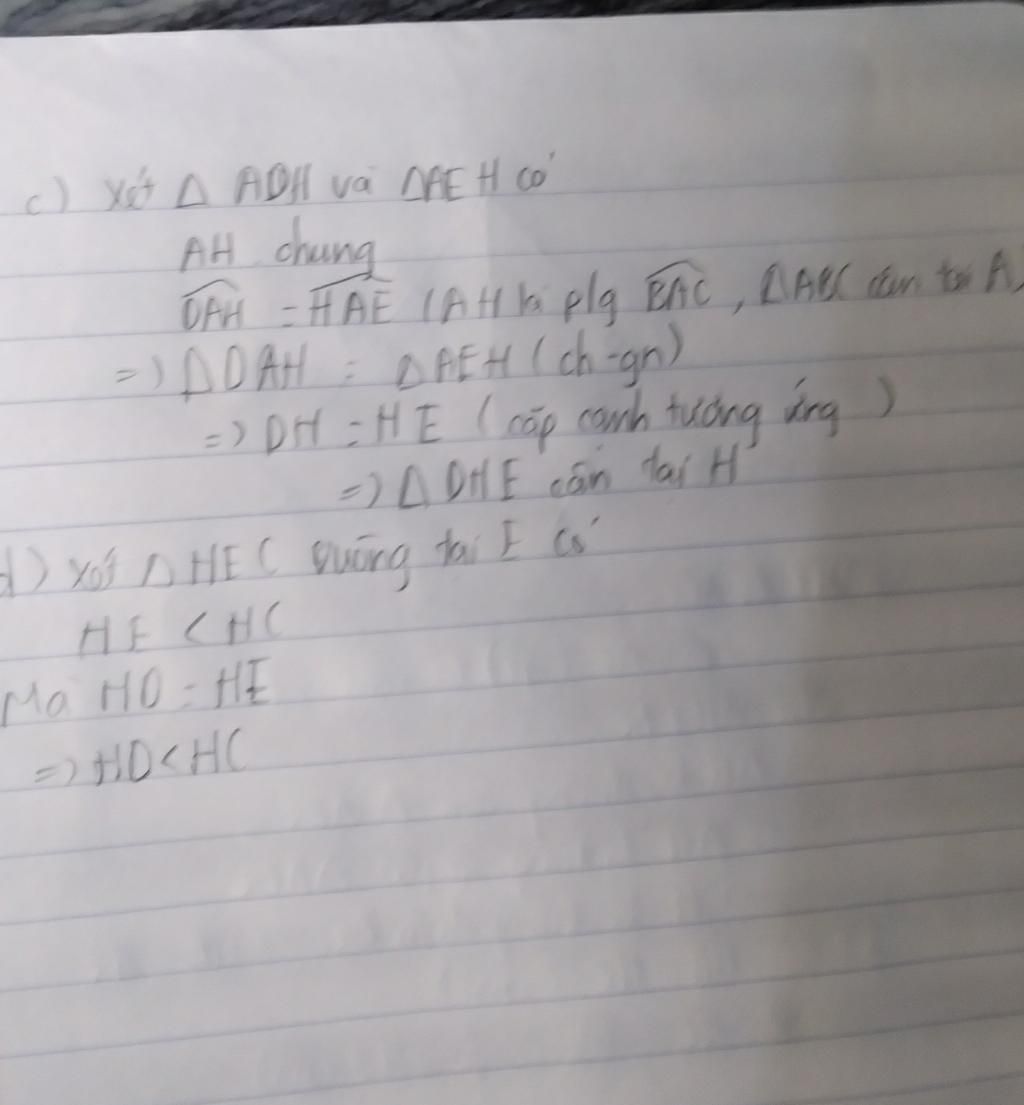 c) Xét Δ ADH và ΔAEH có
AH chung
DAH = HAE (AH là p/g BAC, ΔABC cân tại A)
=) ΔDAH = ΔAEH (ch-gn)
=) DH = HE (cặp cạnh tương ứng)
=) Δ DHE cân tại H
d) Xét Δ HEC vuông tại E có
HE < HC
Mà HD = HE
=) HD < HC